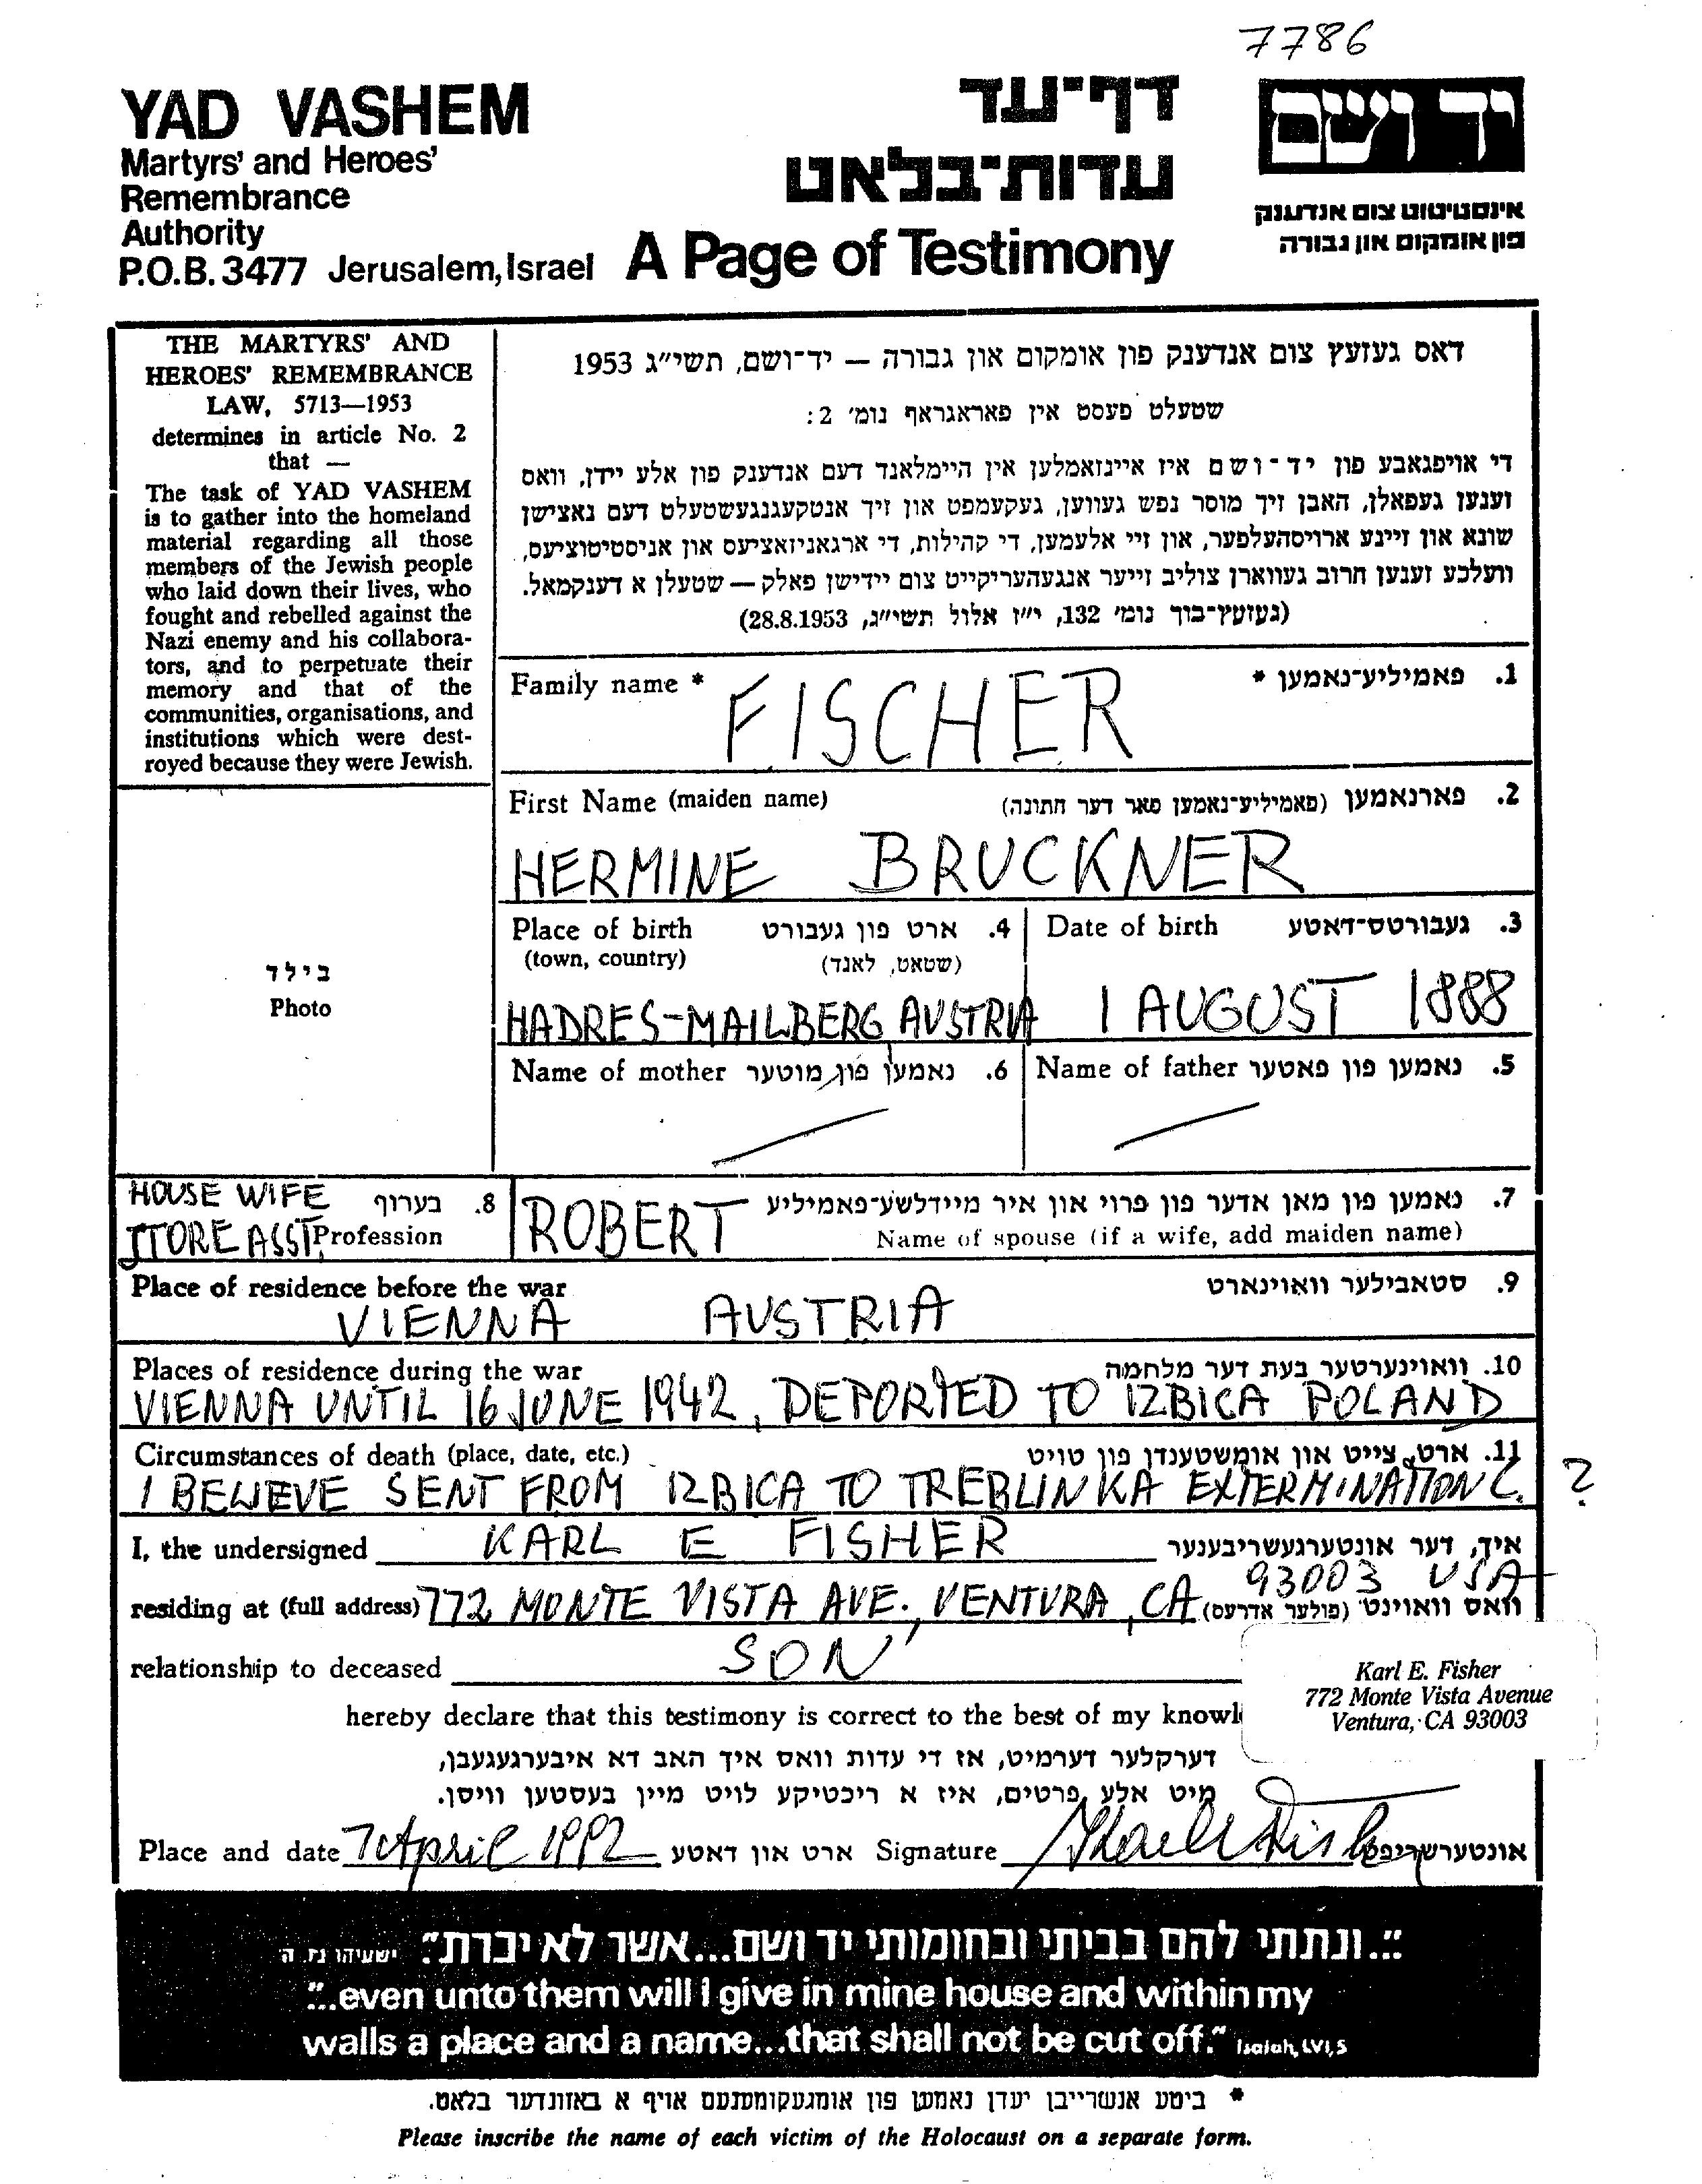 7786
YAD VASHEM
Martyrs' and Heroes'
Remembrance
Authority
P.O.B. 3477 Jerusalem, Israel
דף־עד
עדות־בלאט
A Page of Testimony
יד ושם
אינסטיטוט צום אנדענק
פון אומקום און גבורה
THE MARTYRS' AND
HEROES' REMEMBRANCE
LAW, 5713—1953
determines in article No. 2
that —
The task of YAD VASHEM
is to gather into the homeland
material regarding all those
members of the Jewish people
who laid down their lives, who
fought and rebelled against the
Nazi enemy and his collabora-
tors, and to perpetuate their
memory and that of the
communities, organisations, and
institutions which were dest-
royed because they were Jewish.
דאס געזעץ צום אנדענק פון אומקום און גבורה — יד־ושם, תשי״ג 1953
שטעלט פעסט אין פאראגראף נומ׳ 2:
די אויפגאבע פון יד־ושם איז איינזאמלען אין היימלאנד דעם אנדענק פון אלע יידן, וואס
זענען געפאלן, האבן זיך מוסר נפש געווען, געקעמפט און זיך אנטקעגנגעשטעלט דעם נאצישן
שונא און זיינע ארויסהעלפער, און זיי אלעמען, די קהילות, די ארגאניזאציעס און אניסטיטוציעס,
וועלכע זענען חרוב געווארן צוליב זייער אנגעהעריקייט צום יידישן פאלק — שטעלן א דענקמאל.
(געזעץ־בוך נומ׳ 132, י״ז אלול תשי״ג, 28.8.1953)
Family name * FISCHER 1. פאמיליע־נאמען *
First Name (maiden name) 2. פארנאמען (פאמיליע־נאמען פאר דער חתונה)
HERMINE BRUCKNER
Place of birth 4. ארט פון געבורט
(town, country) (שטאט, לאנד)
HADRES-MAILBERG AUSTRIA
Date of birth 3. געבורטס־דאטע
1 AUGUST 1888
בילד
Photo
Name of mother 6. נאמען פון מוטער
Name of father 5. נאמען פון פאטער
HOUSE WIFE 8. בערוף
STORE ASST. Profession
ROBERT 7. נאמען פון מאן אדער פון פרוי און איר מיידלשע־פאמיליע
Name of spouse (if a wife, add maiden name)
Place of residence before the war 9. סטאבילער וואוינארט
VIENNA AUSTRIA
Places of residence during the war 10. וואוינערטער בעת דער מלחמה
VIENNA UNTIL 16 JUNE 1942, DEPORTED TO IZBICA POLAND
Circumstances of death (place, date, etc.) 11. ארט, צייט און אומשטענדן פון טויט
I BELIEVE SENT FROM IZBICA TO TREBLINKA EXTERMINATION C. ?
I, the undersigned KARL E FISHER איך, דער אונטערגעשריבענער
93003 USA
residing at (full address) 772 MONTE VISTA AVE., VENTURA, CA וואס וואוינט (פולער אדרעס)
relationship to deceased SON
Karl E. Fisher
772 Monte Vista Avenue
Ventura, CA 93003
hereby declare that this testimony is correct to the best of my knowl
דערקלער דערמיט, אז די עדות וואס איך האב דא איבערגעגעבן,
מיט אלע פרטים, איז א ריכטיקע לויט מיין בעסטען וויסן.
Place and date 7 April 1992 ארט און דאטע Signature Karl E Fisher אונטערשריפט
"...ונתתי להם בביתי ובחומותי יד ושם...אשר לא יכרת" ישעיהו נו, ה
"...even unto them will I give in mine house and within my
walls a place and a name...that shall not be cut off." Isaiah, LVI, 5
* ביטע אנשרייבן יעדן נאמען פון אומגעקומענעם אויף א באזונדער בלאט.
Please inscribe the name of each victim of the Holocaust on a separate form.